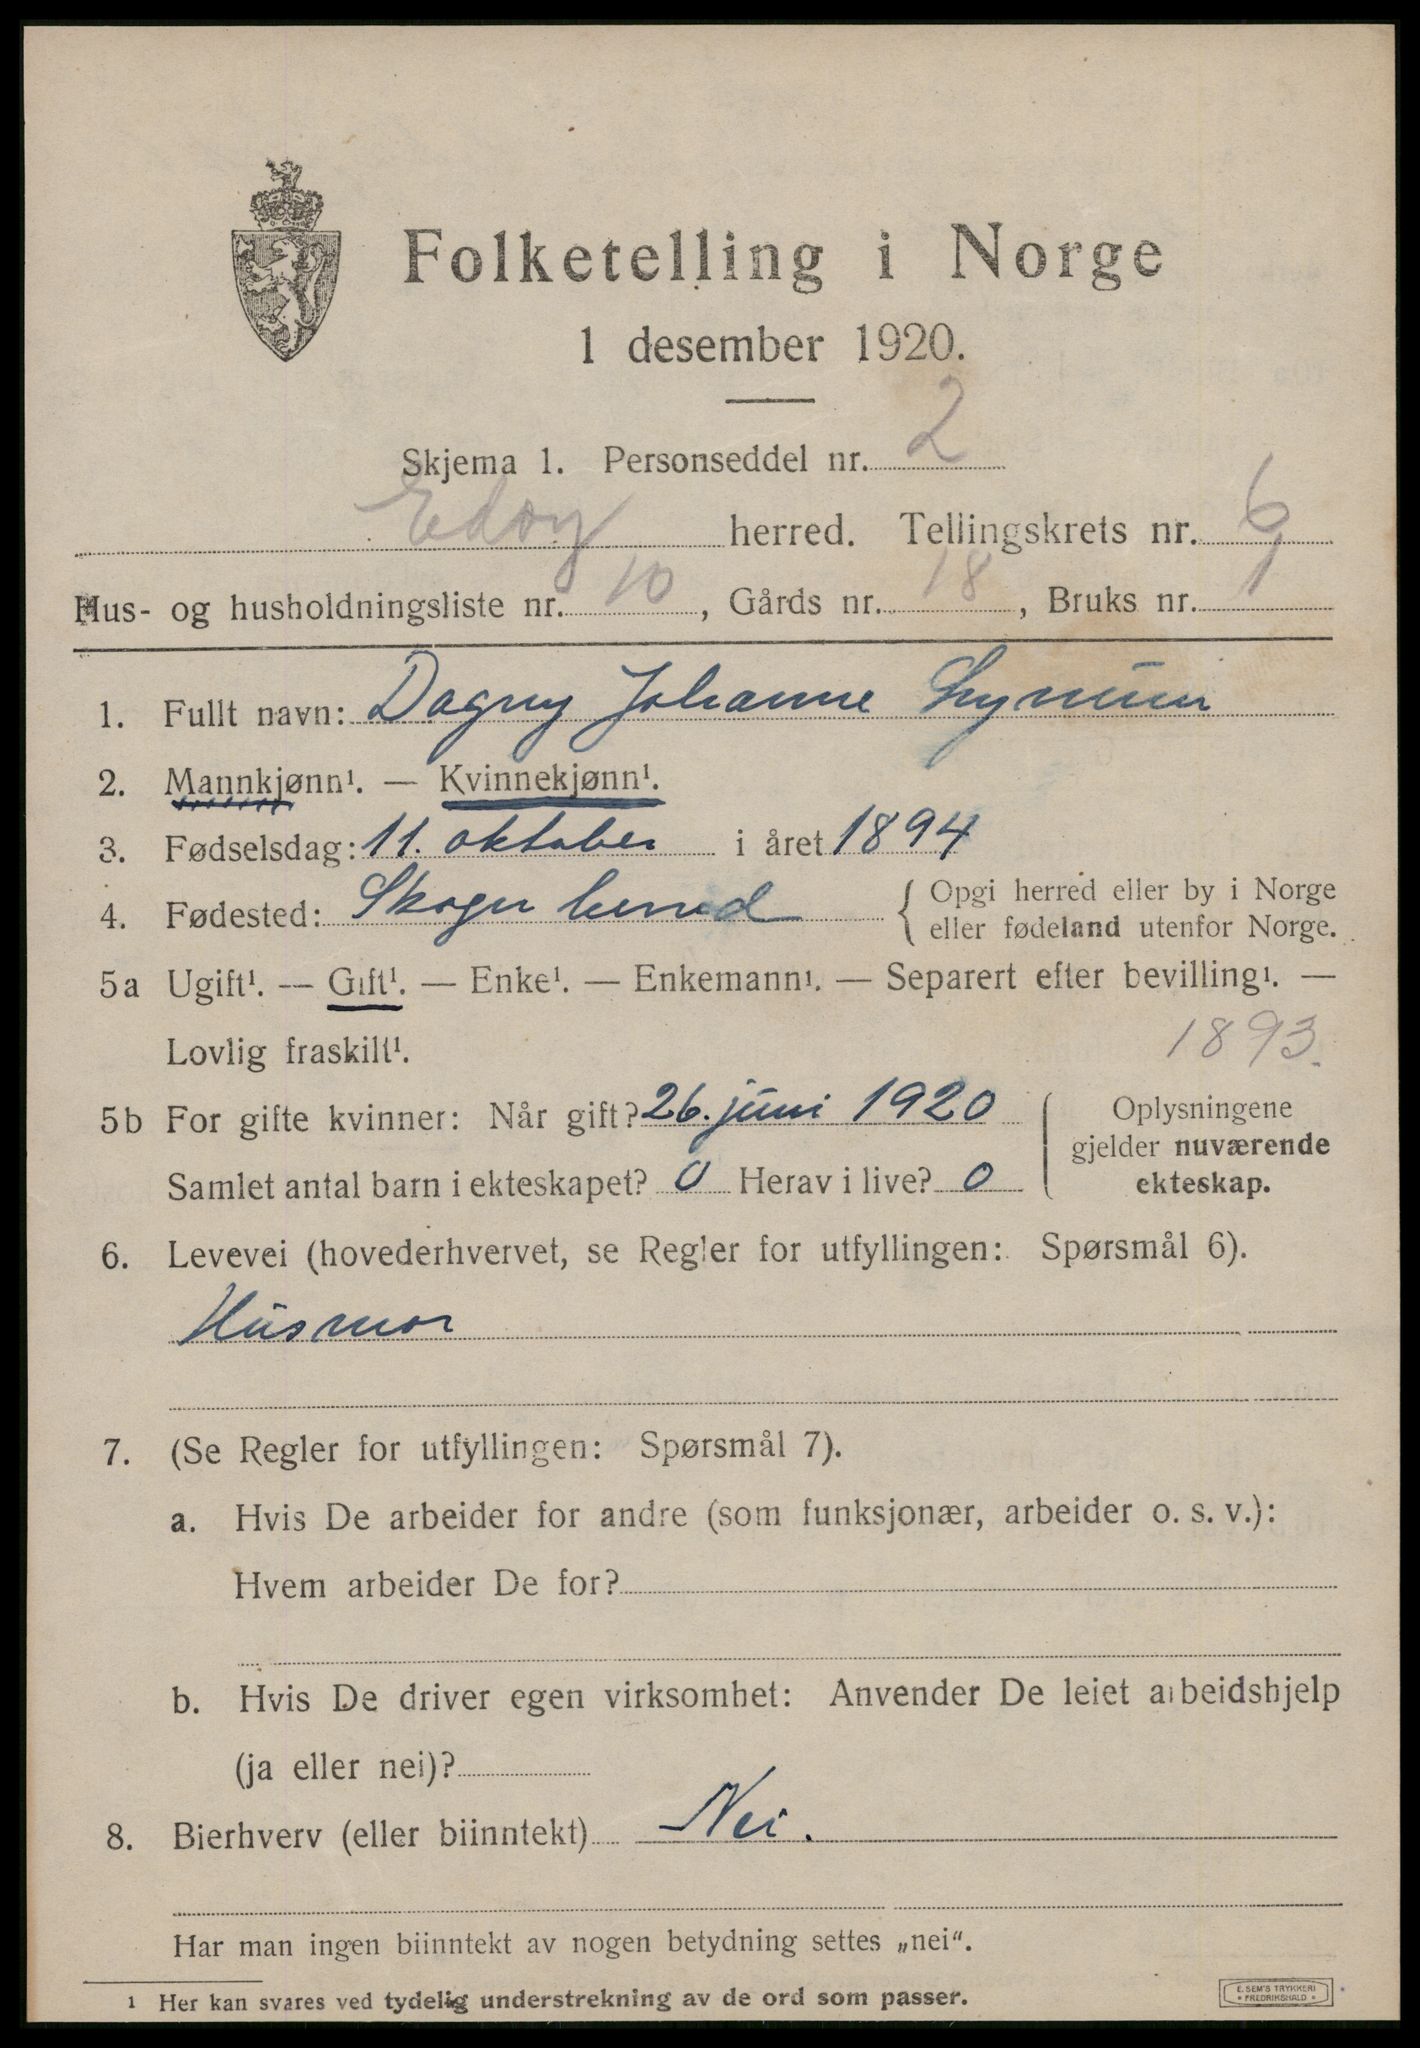 Folketelling i Norge
1 desember 1920.
Skjema 1. Personseddel nr. 2
Edøy herred. Tellingskrets nr. 6
Hus- og husholdningsliste nr. 10, Gårds nr. 18, Bruks nr. 1
1. Fullt navn: Dagny Johanne
2. Mannkjønn¹. — Kvinnekjønn¹.
3. Fødselsdag: 11. oktober i året 1894
4. Fødested: Skoger herred { Opgi herred eller by i Norge
eller fødeland utenfor Norge.
5a Ugift¹. — Gift¹. — Enke¹. — Enkemann¹. — Separert efter bevilling¹. —
Lovlig fraskilt¹. 1893.
5b For gifte kvinner: Når gift? 26. juni 1920
Samlet antal barn i ekteskapet? 0 Herav i live? 0
Oplysningene
gjelder nuværende
ekteskap.
6. Levevei (hovederhvervet, se Regler for utfyllingen: Spørsmål 6).
Husmor
7. (Se Regler for utfyllingen: Spørsmål 7).
a. Hvis De arbeider for andre (som funksjonær, arbeider o. s. v.):
Hvem arbeider De for?
b. Hvis De driver egen virksomhet: Anvender De leiet arbeidshjelp
(ja eller nei)?
8. Bierhverv (eller biinntekt) Nei.
Har man ingen biinntekt av nogen betydning settes „nei“.
1 Her kan svares ved tydelig understrekning av de ord som passer.
E. SEM'S TRYKKERI
* FREDRIKSHALD *